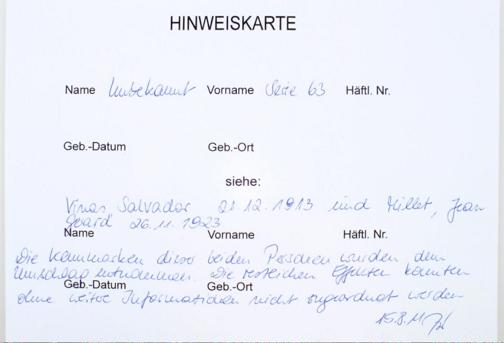 HINWEISKARTE
Name Unbekannt Vorname Serie 63 Häftl. Nr.
Geb.-Datum Geb.-Ort
siehe:
Vinas Salvador 21.12.1913 und Millet, Jean
Gérard 26.11.1923
Name Vorname Häftl. Nr.
Die dieser beiden Personen wurden dem
Umschlag entnommen. Die restlichen Effekten konnten
Geb.-Datum Geb.-Ort
ohne weitere Informationen nicht zugeordnet werden
15.8.11